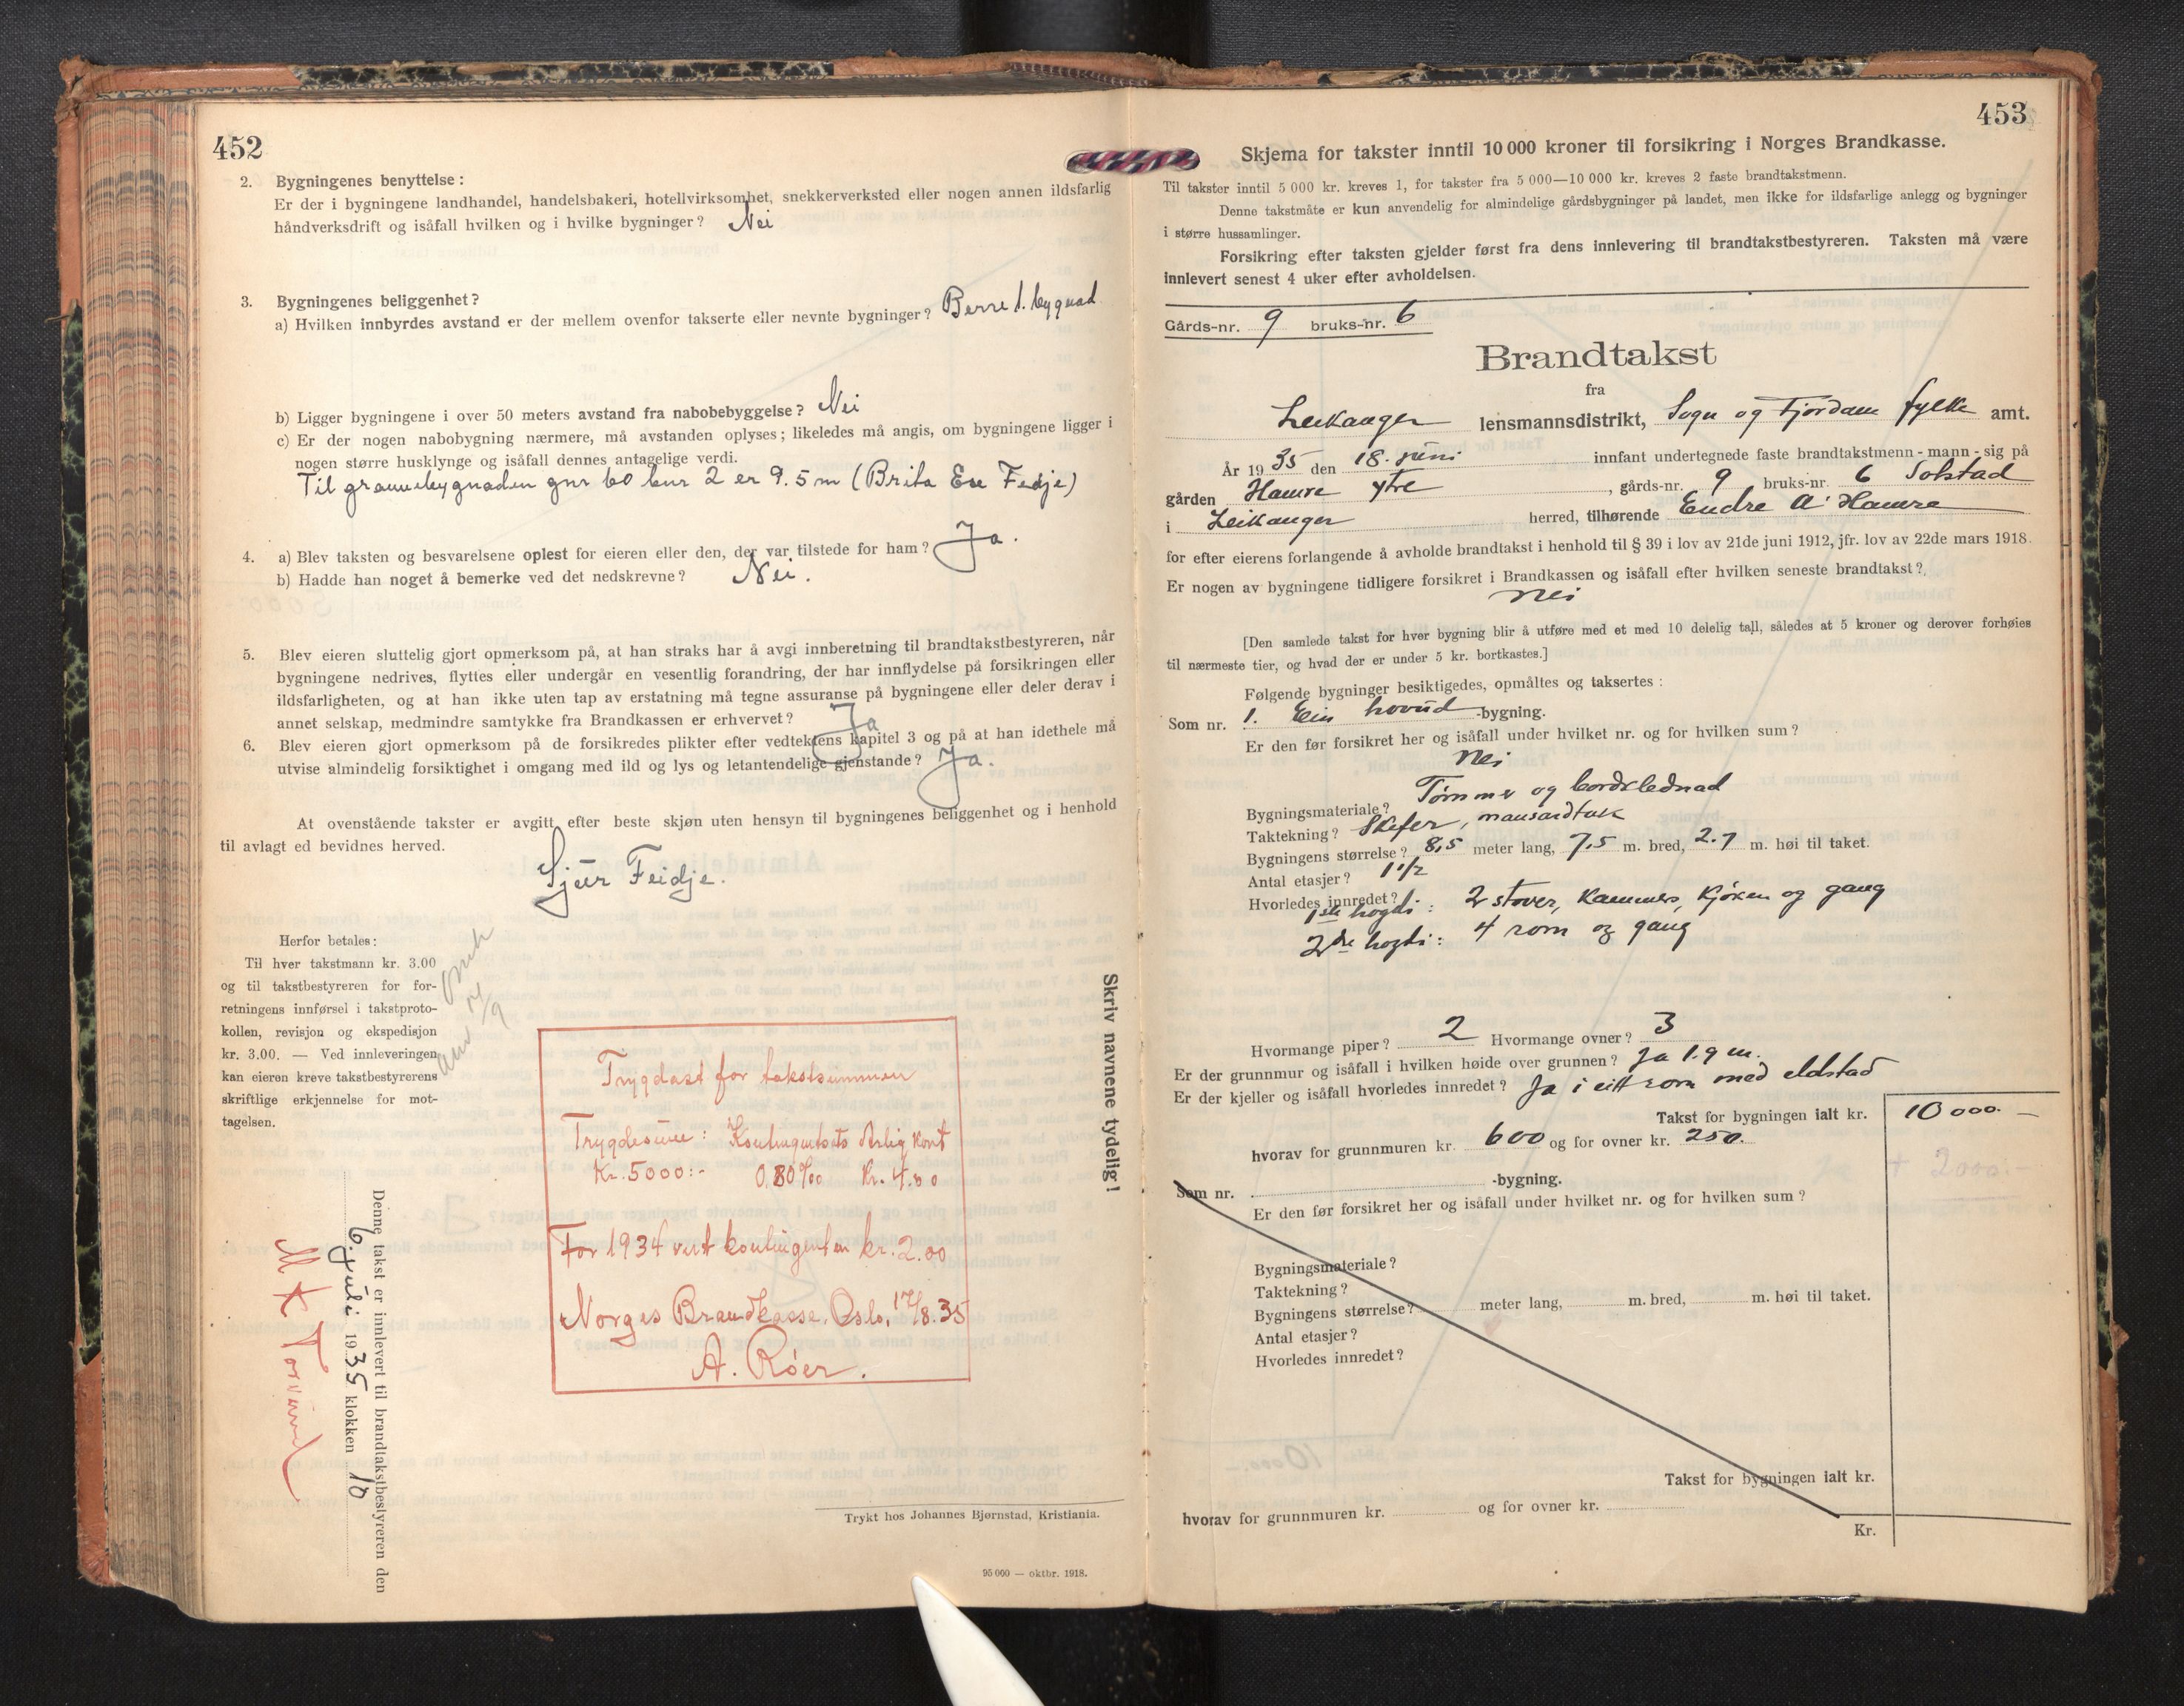 452
2. Bygningenes benyttelse :
Er der i bygningene landhandel, handelsbakeri, hotellvirksomhet, snekkerverksted eller nogen annen ildsfarlig
håndverksdrift og isåfall hvilken og i hvilke bygninger ? Nei
3. Bygningenes beliggenhet ?
a) Hvilken innbyrdes avstand er der mellem ovenfor takserte eller nevnte bygninger ? Berre 1. bygnad
b) Ligger bygningene i over 50 meters avstand fra nabobebyggelse ? Nei
c) Er der nogen nabobygning nærmere, må avstanden oplyses ; likeledes må angis, om bygningene ligger i
nogen større husklynge og isåfall dennes antagelige verdi.
Til grannebygnaden gnr 60 bnr 2 er 9.5 m (Brita Fedje)
4. a) Blev taksten og besvarelsene oplest for eieren eller den, der var tilstede for ham ? Ja.
b) Hadde han noget å bemerke ved det nedskrevne ? Nei.
5. Blev eieren sluttelig gjort opmerksom på, at han straks har å avgi innberetning til brandtakstbestyreren, når
bygningene nedrives, flyttes eller undergår en vesentlig forandring, der har innflydelse på forsikringen eller
ildsfarligheten, og at han ikke uten tap av erstatning må tegne assuranse på bygningene eller deler derav i
annet selskap, medmindre samtykke fra Brandkassen er erhvervet ? Ja
6. Blev eieren gjort opmerksom på de forsikredes plikter efter vedtektens kapitel 3 og på at han idethele må
utvise almindelig forsiktighet i omgang med ild og lys og letantendelige gjenstande ? Ja.
At ovenstående takster er avgitt efter beste skjøn uten hensyn til bygningenes beliggenhet og i henhold
til avlagt ed bevidnes herved.
Sjur Feidje.
Herfor betales :
Til hver takstmann kr. 3.00
og til takstbestyreren for for-
retningens innførsel i takstproto-
kollen, revisjon og ekspedisjon
kr. 3.00. — Ved innleveringen
kan eieren kreve takstbestyrerens
skriftlige erkjennelse for mot-
tagelsen.
Trygdast for takstsummen
Trygdesum : Kontingentsats Årlig kont
Kr. 5000 :- 0,80 ‰ Kr. 4.00
For 1934 vert kontingenten kr. 2.00
Norges Brandkasse, Oslo, 17/8.35
A. Röer.
Denne takst er innlevert til brandtakstbestyreren den
6. juli 1935 klokken 10
Skriv navnene tydelig !
Trykt hos Johannes Bjørnstad, Kristiania.
95 000 — oktbr. 1918.
453
Skjema for takster inntil 10 000 kroner til forsikring i Norges Brandkasse.
Til takster inntil 5 000 kr. kreves 1, for takster fra 5 000—10 000 kr. kreves 2 faste brandtakstmenn.
Denne takstmåte er kun anvendelig for almindelige gårdsbygninger på landet, men ikke for ildsfarlige anlegg og bygninger
i større hussamlinger.
Forsikring efter taksten gjelder først fra dens innlevering til brandtakstbestyreren. Taksten må være
innlevert senest 4 uker efter avholdelsen.
Gårds-nr. 9 bruks-nr. 6
Brandtakst
fra
Leikanger lensmannsdistrikt, Sogn og Fjordane fylke amt.
År 1935 den 18. juni innfant undertegnede faste brandtakstmenn - mann - sig på
gården Hamre ytre, gårds-nr. 9 bruks-nr. 6 Solstad
i Leikanger herred, tilhørende Endre A. Hamre
for efter eierens forlangende å avholde brandtakst i henhold til § 39 i lov av 21de juni 1912, jfr. lov av 22de mars 1918.
Er nogen av bygningene tidligere forsikret i Brandkassen og isåfall efter hvilken seneste brandtakst ?
Nei
[Den samlede takst for hver bygning blir å utføre med et med 10 delelig tall, således at 5 kroner og derover forhøies
til nærmeste tier, og hvad der er under 5 kr. bortkastes.]
Følgende bygninger besiktigedes, opmåltes og taksertes :
Som nr. 1. Ein hovud -bygning.
Er den før forsikret her og isåfall under hvilket nr. og for hvilken sum ?
Nei
Bygningsmateriale ? Tømmer og bordklednad
Taktekning ? Skifer, mansardtak
Bygningens størrelse ? 8,5 meter lang, 7,5 m. bred, 2.7 m. høi til taket.
Antal etasjer ? 1 1/2
Hvorledes innredet ?
1ste høgdi : 2 stover, kammers, kjøken og gang
2dre høgdi : 4 rom og gang
Hvormange piper ? 2 Hvormange ovner ? 3
Er der grunnmur og isåfall i hvilken høide over grunnen ? Ja 1.9 m.
Er der kjeller og isåfall hvorledes innredet ? Ja i eitt rom med eldstad
Takst for bygningen ialt kr. 10 000.—
hvorav for grunnmuren kr. 600 og for ovner kr. 250.
+ 2000.-
Som nr. -bygning.
Er den før forsikret her og isåfall under hvilket nr. og for hvilken sum ?
Bygningsmateriale ?
Taktekning ?
Bygningens størrelse ? meter lang, m. bred, m. høi til taket.
Antal etasjer ?
Hvorledes innredet ?
Takst for bygningen ialt kr.
hvorav for grunnmuren kr. og for ovner kr.
Kr.